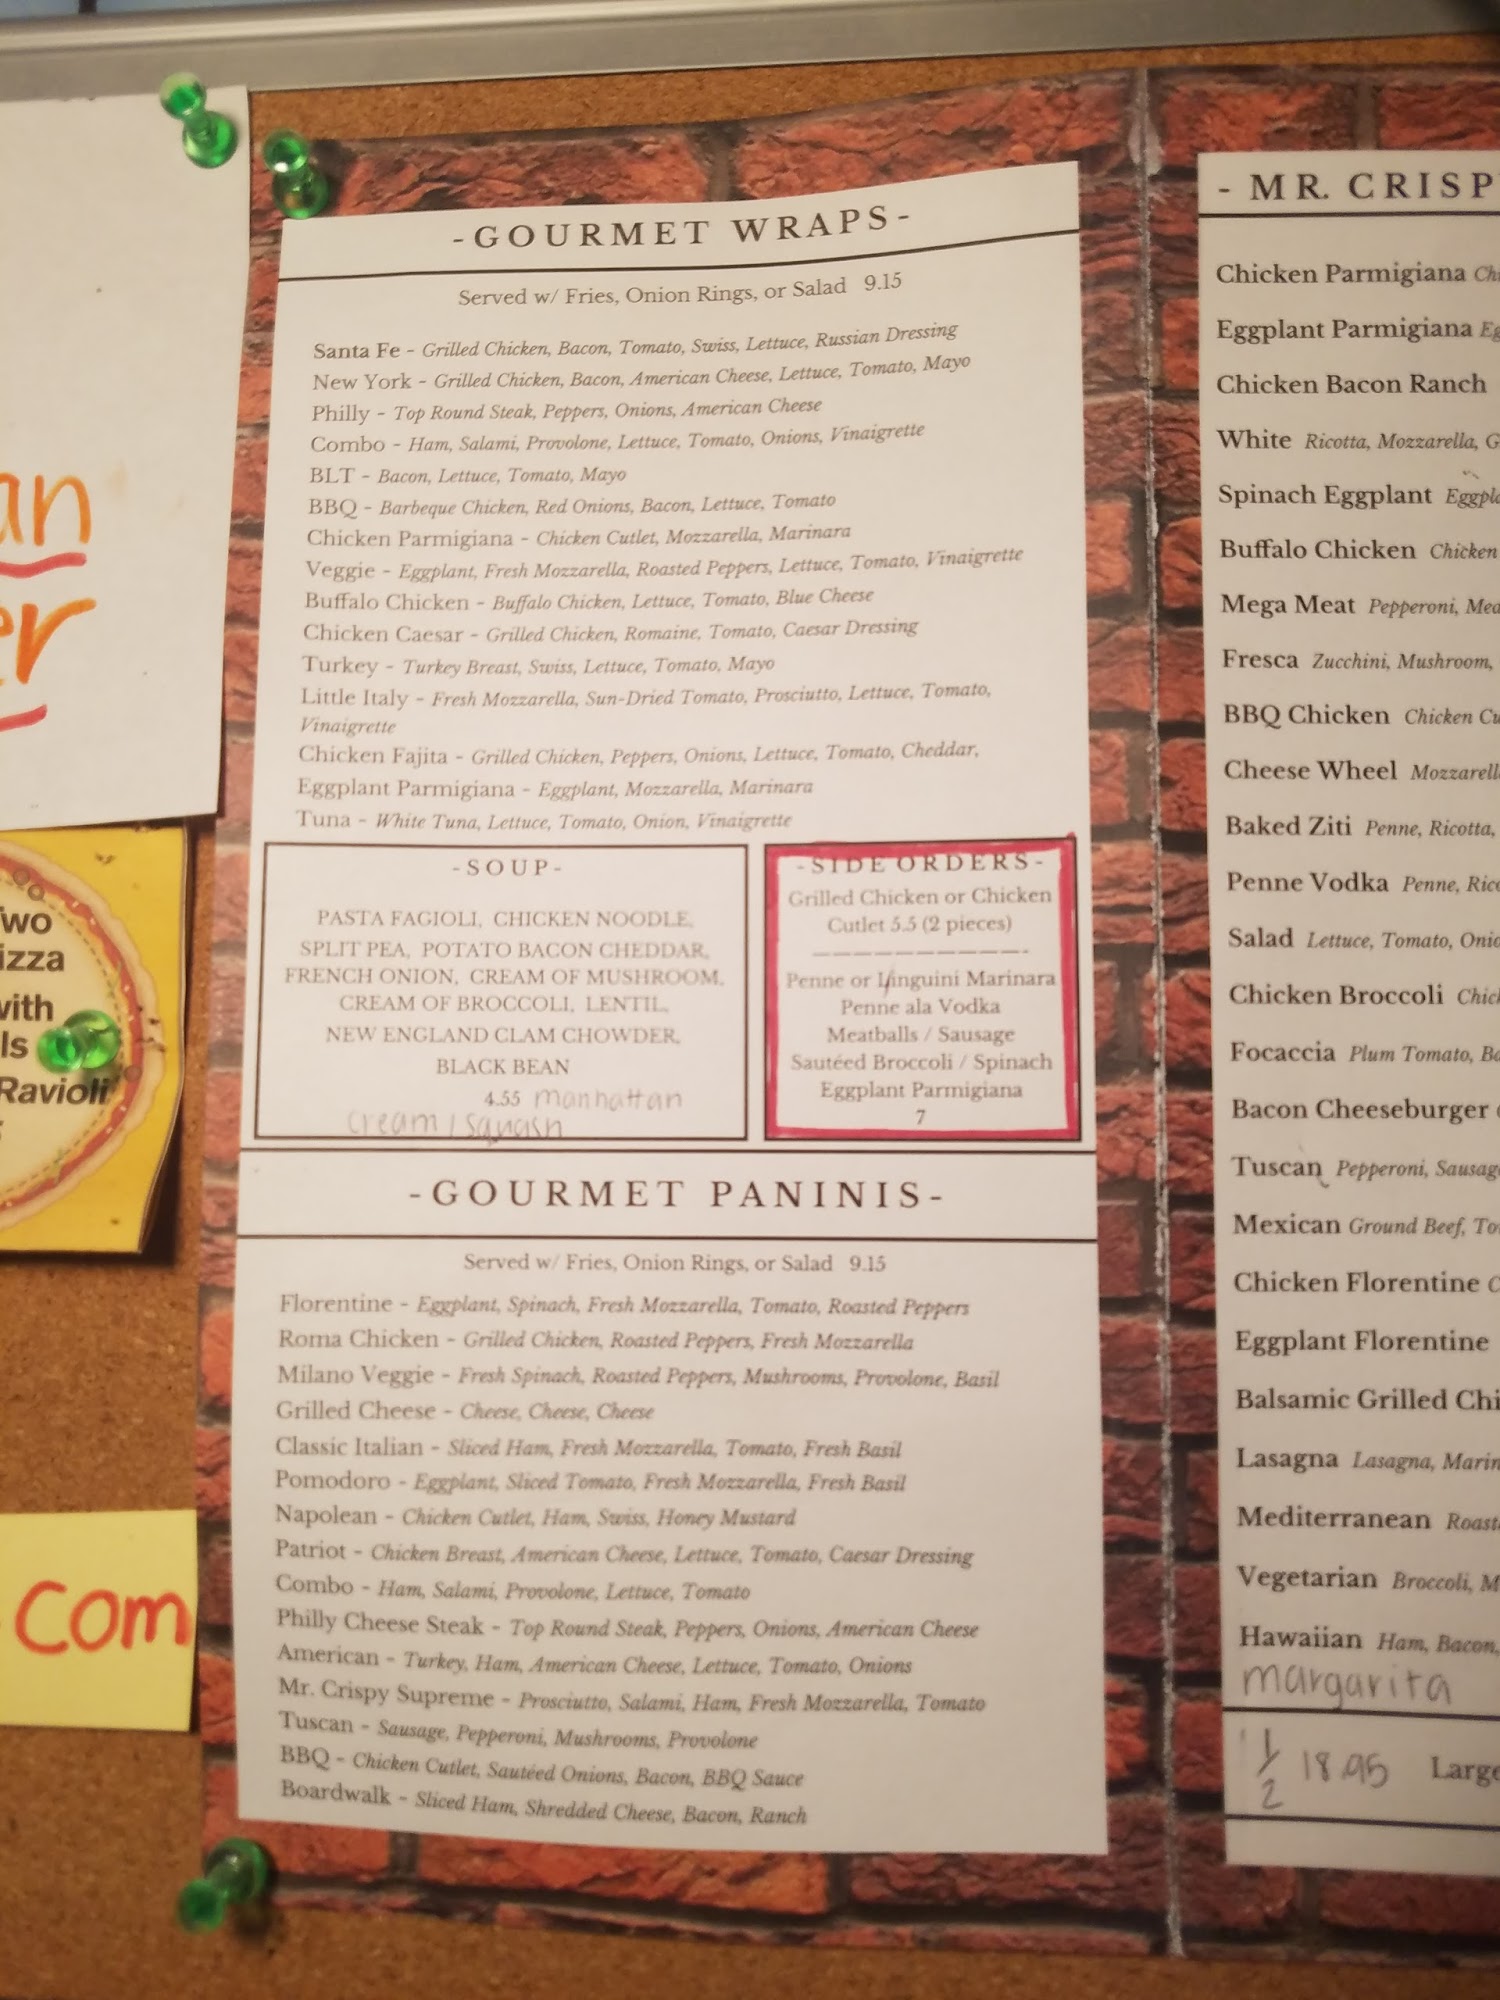 an
er
Two
izza
with
ls
Ravioli
com
-GOURMET WRAPS-
Served w/ Fries, Onion Rings, or Salad 9.15
Santa Fe - Grilled Chicken, Bacon, Tomato, Swiss, Lettuce, Russian Dressing
New York - Grilled Chicken, Bacon, American Cheese, Lettuce, Tomato, Mayo
Philly - Top Round Steak, Peppers, Onions, American Cheese
Combo - Ham, Salami, Provolone, Lettuce, Tomato, Onions, Vinaigrette
BLT - Bacon, Lettuce, Tomato, Mayo
BBQ - Barbeque Chicken, Red Onions, Bacon, Lettuce, Tomato
Chicken Parmigiana - Chicken Cutlet, Mozzarella, Marinara
Veggie - Eggplant, Fresh Mozzarella, Roasted Peppers, Lettuce, Tomato, Vinaigrette
Buffalo Chicken - Buffalo Chicken, Lettuce, Tomato, Blue Cheese
Chicken Caesar - Grilled Chicken, Romaine, Tomato, Caesar Dressing
Turkey - Turkey Breast, Swiss, Lettuce, Tomato, Mayo
Little Italy - Fresh Mozzarella, Sun-Dried Tomato, Prosciutto, Lettuce, Tomato,
Vinaigrette
Chicken Fajita - Grilled Chicken, Peppers, Onions, Lettuce, Tomato, Cheddar,
Eggplant Parmigiana - Eggplant, Mozzarella, Marinara
Tuna - White Tuna, Lettuce, Tomato, Onion, Vinaigrette
-SOUP-
PASTA FAGIOLI, CHICKEN NOODLE,
SPLIT PEA, POTATO BACON CHEDDAR,
FRENCH ONION, CREAM OF MUSHROOM,
CREAM OF BROCCOLI, LENTIL,
NEW ENGLAND CLAM CHOWDER,
BLACK BEAN
4.55 manhattan
cream / squash
-SIDE ORDERS-
Grilled Chicken or Chicken
Cutlet 5.5 (2 pieces)
Penne or Linguini Marinara
Penne ala Vodka
Meatballs / Sausage
Sautéed Broccoli / Spinach
Eggplant Parmigiana
7
-GOURMET PANINIS-
Served w/ Fries, Onion Rings, or Salad 9.15
Florentine - Eggplant, Spinach, Fresh Mozzarella, Tomato, Roasted Peppers
Roma Chicken - Grilled Chicken, Roasted Peppers, Fresh Mozzarella
Milano Veggie - Fresh Spinach, Roasted Peppers, Mushrooms, Provolone, Basil
Grilled Cheese - Cheese, Cheese, Cheese
Classic Italian - Sliced Ham, Fresh Mozzarella, Tomato, Fresh Basil
Pomodoro - Eggplant, Sliced Tomato, Fresh Mozzarella, Fresh Basil
Napolean - Chicken Cutlet, Ham, Swiss, Honey Mustard
Patriot - Chicken Breast, American Cheese, Lettuce, Tomato, Caesar Dressing
Combo - Ham, Salami, Provolone, Lettuce, Tomato
Philly Cheese Steak - Top Round Steak, Peppers, Onions, American Cheese
American - Turkey, Ham, American Cheese, Lettuce, Tomato, Onions
Mr. Crispy Supreme - Prosciutto, Salami, Ham, Fresh Mozzarella, Tomato
Tuscan - Sausage, Pepperoni, Mushrooms, Provolone
BBQ - Chicken Cutlet, Sautéed Onions, Bacon, BBQ Sauce
Boardwalk - Sliced Ham, Shredded Cheese, Bacon, Ranch
- MR. CRISP
Chicken Parmigiana Ch
Eggplant Parmigiana Eg
Chicken Bacon Ranch
White Ricotta, Mozzarella, G
Spinach Eggplant Eggpla
Buffalo Chicken Chicken
Mega Meat Pepperoni, Mea
Fresca Zucchini, Mushroom,
BBQ Chicken Chicken Cu
Cheese Wheel Mozzarell
Baked Ziti Penne, Ricotta,
Penne Vodka Penne, Rico
Salad Lettuce, Tomato, Onio
Chicken Broccoli Chick
Focaccia Plum Tomato, Ba
Bacon Cheeseburger
Tuscan Pepperoni, Sausag
Mexican Ground Beef, To
Chicken Florentine C
Eggplant Florentine
Balsamic Grilled Chi
Lasagna Lasagna, Marin
Mediterranean Roast
Vegetarian Broccoli, M
Hawaiian Ham, Bacon,
margarita
1/2 18.95 Large